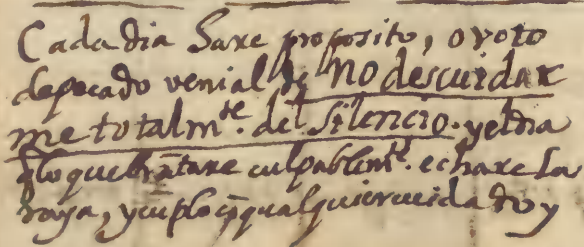 Cada dia hare proposito, o voto
de pecado venial de no descuidar
me totalmte. del silencio. y el dia
q̃ lo quebrãtare culpablemte. echare la
raya, y cũplo cõ qualquier cuidado y